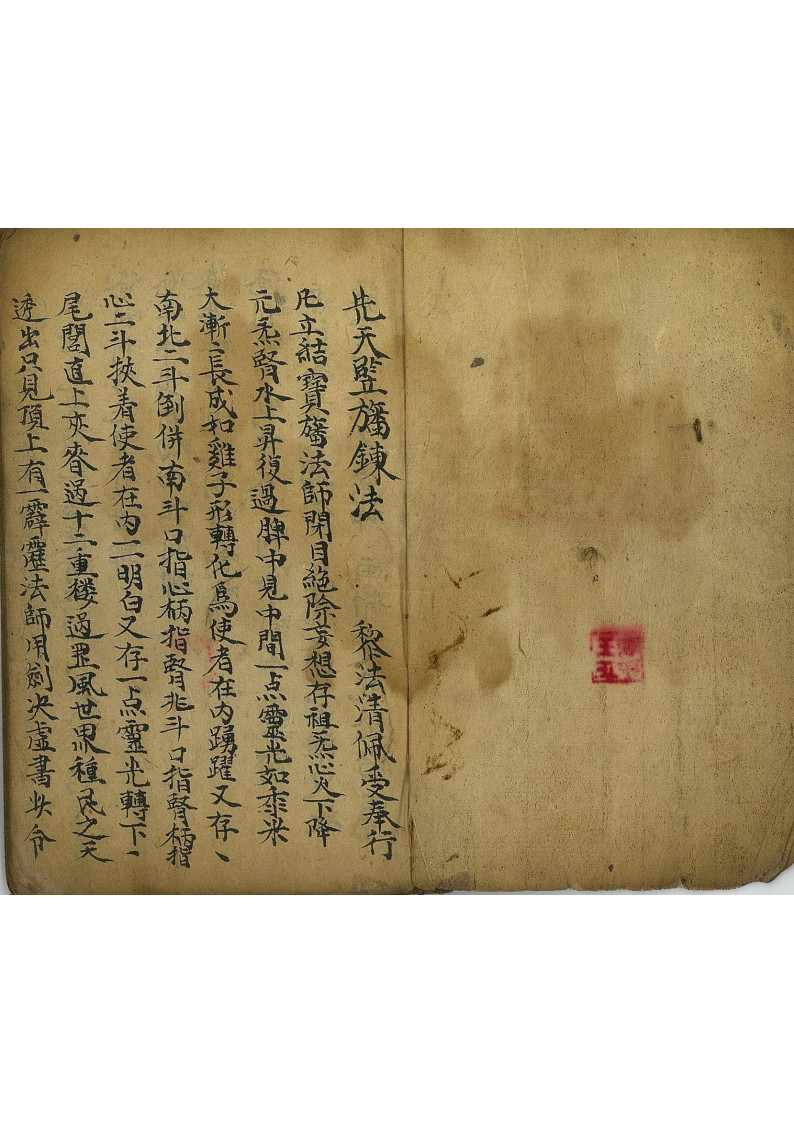 先天竪旛鍊法 黎法清佩受奉行
凡立結寶旛法師閉目絶除妄想存祖炁心火下降
元炁腎水上昇復過脾中見中間一点靈光如黍米
大漸〻長成如雞子形轉化爲使者在内踴躍又存、
南北二斗倒併南斗口指心柄指腎北斗口指腎柄指
心二斗挾着使者在内一一明白又存一点靈光轉下、
尾閭直上夾脊過十二重楼過罡風世界種民之天
透出只見頂上有一霹靂法師用劍决虚書 令